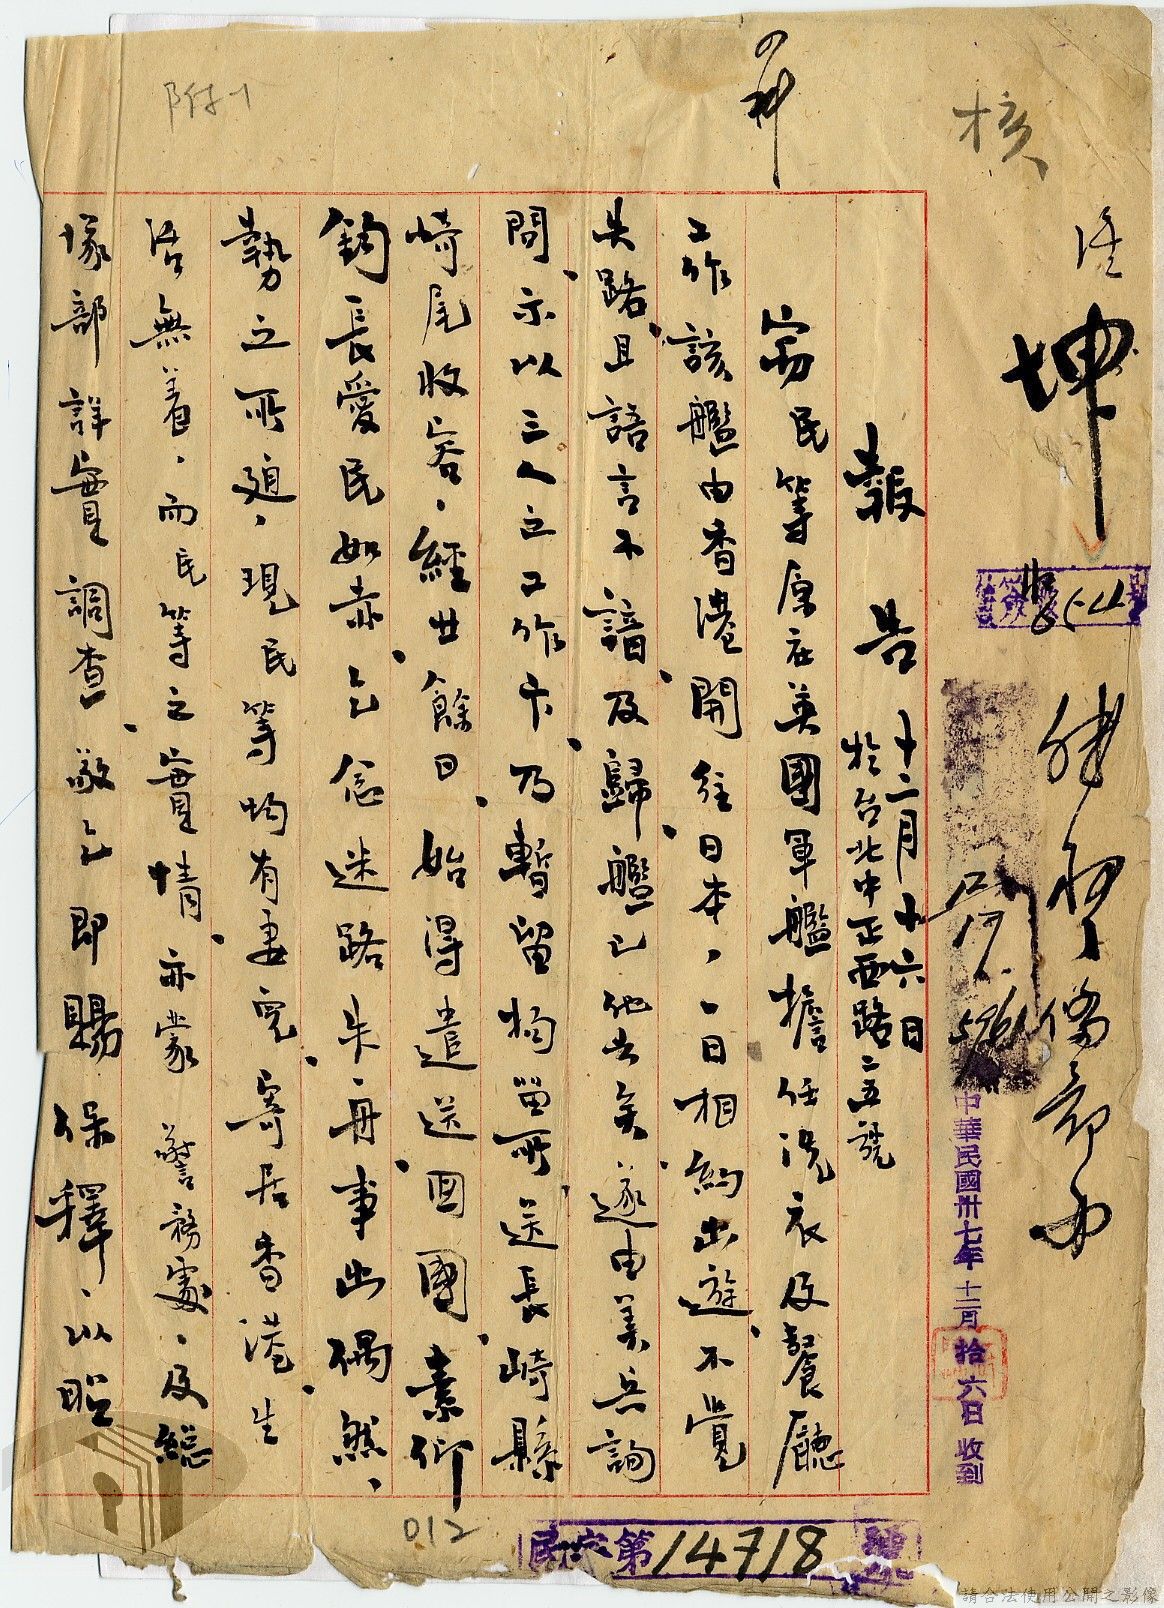 附1
核
坤
報告 十二月十六日
於台北中正西路二五號
竊民等原在英國軍艦擔任洗衣及餐廳
工作該艦由香港開往日本，一日相約出遊、不覺
失路、且語言不諳、及歸艦已他去矣、遂由美兵詢
問、示以三人之工作卡、乃暫留拘留所、送長崎縣
崎尾收容，經廿餘日、始得遣送回國、素仰
鈞長愛民如赤、乞念迷路失舟事出偶然、
勢之所迫，現民等均有妻兒、寄居香港、生
活無着，而民等之實情、亦蒙 警務處、及總
隊部詳實調查、敬乞即賜保釋、以昭
中華民國卅七年十二月拾六日收到
民 字第14718號
012
請合法使用公開之影像